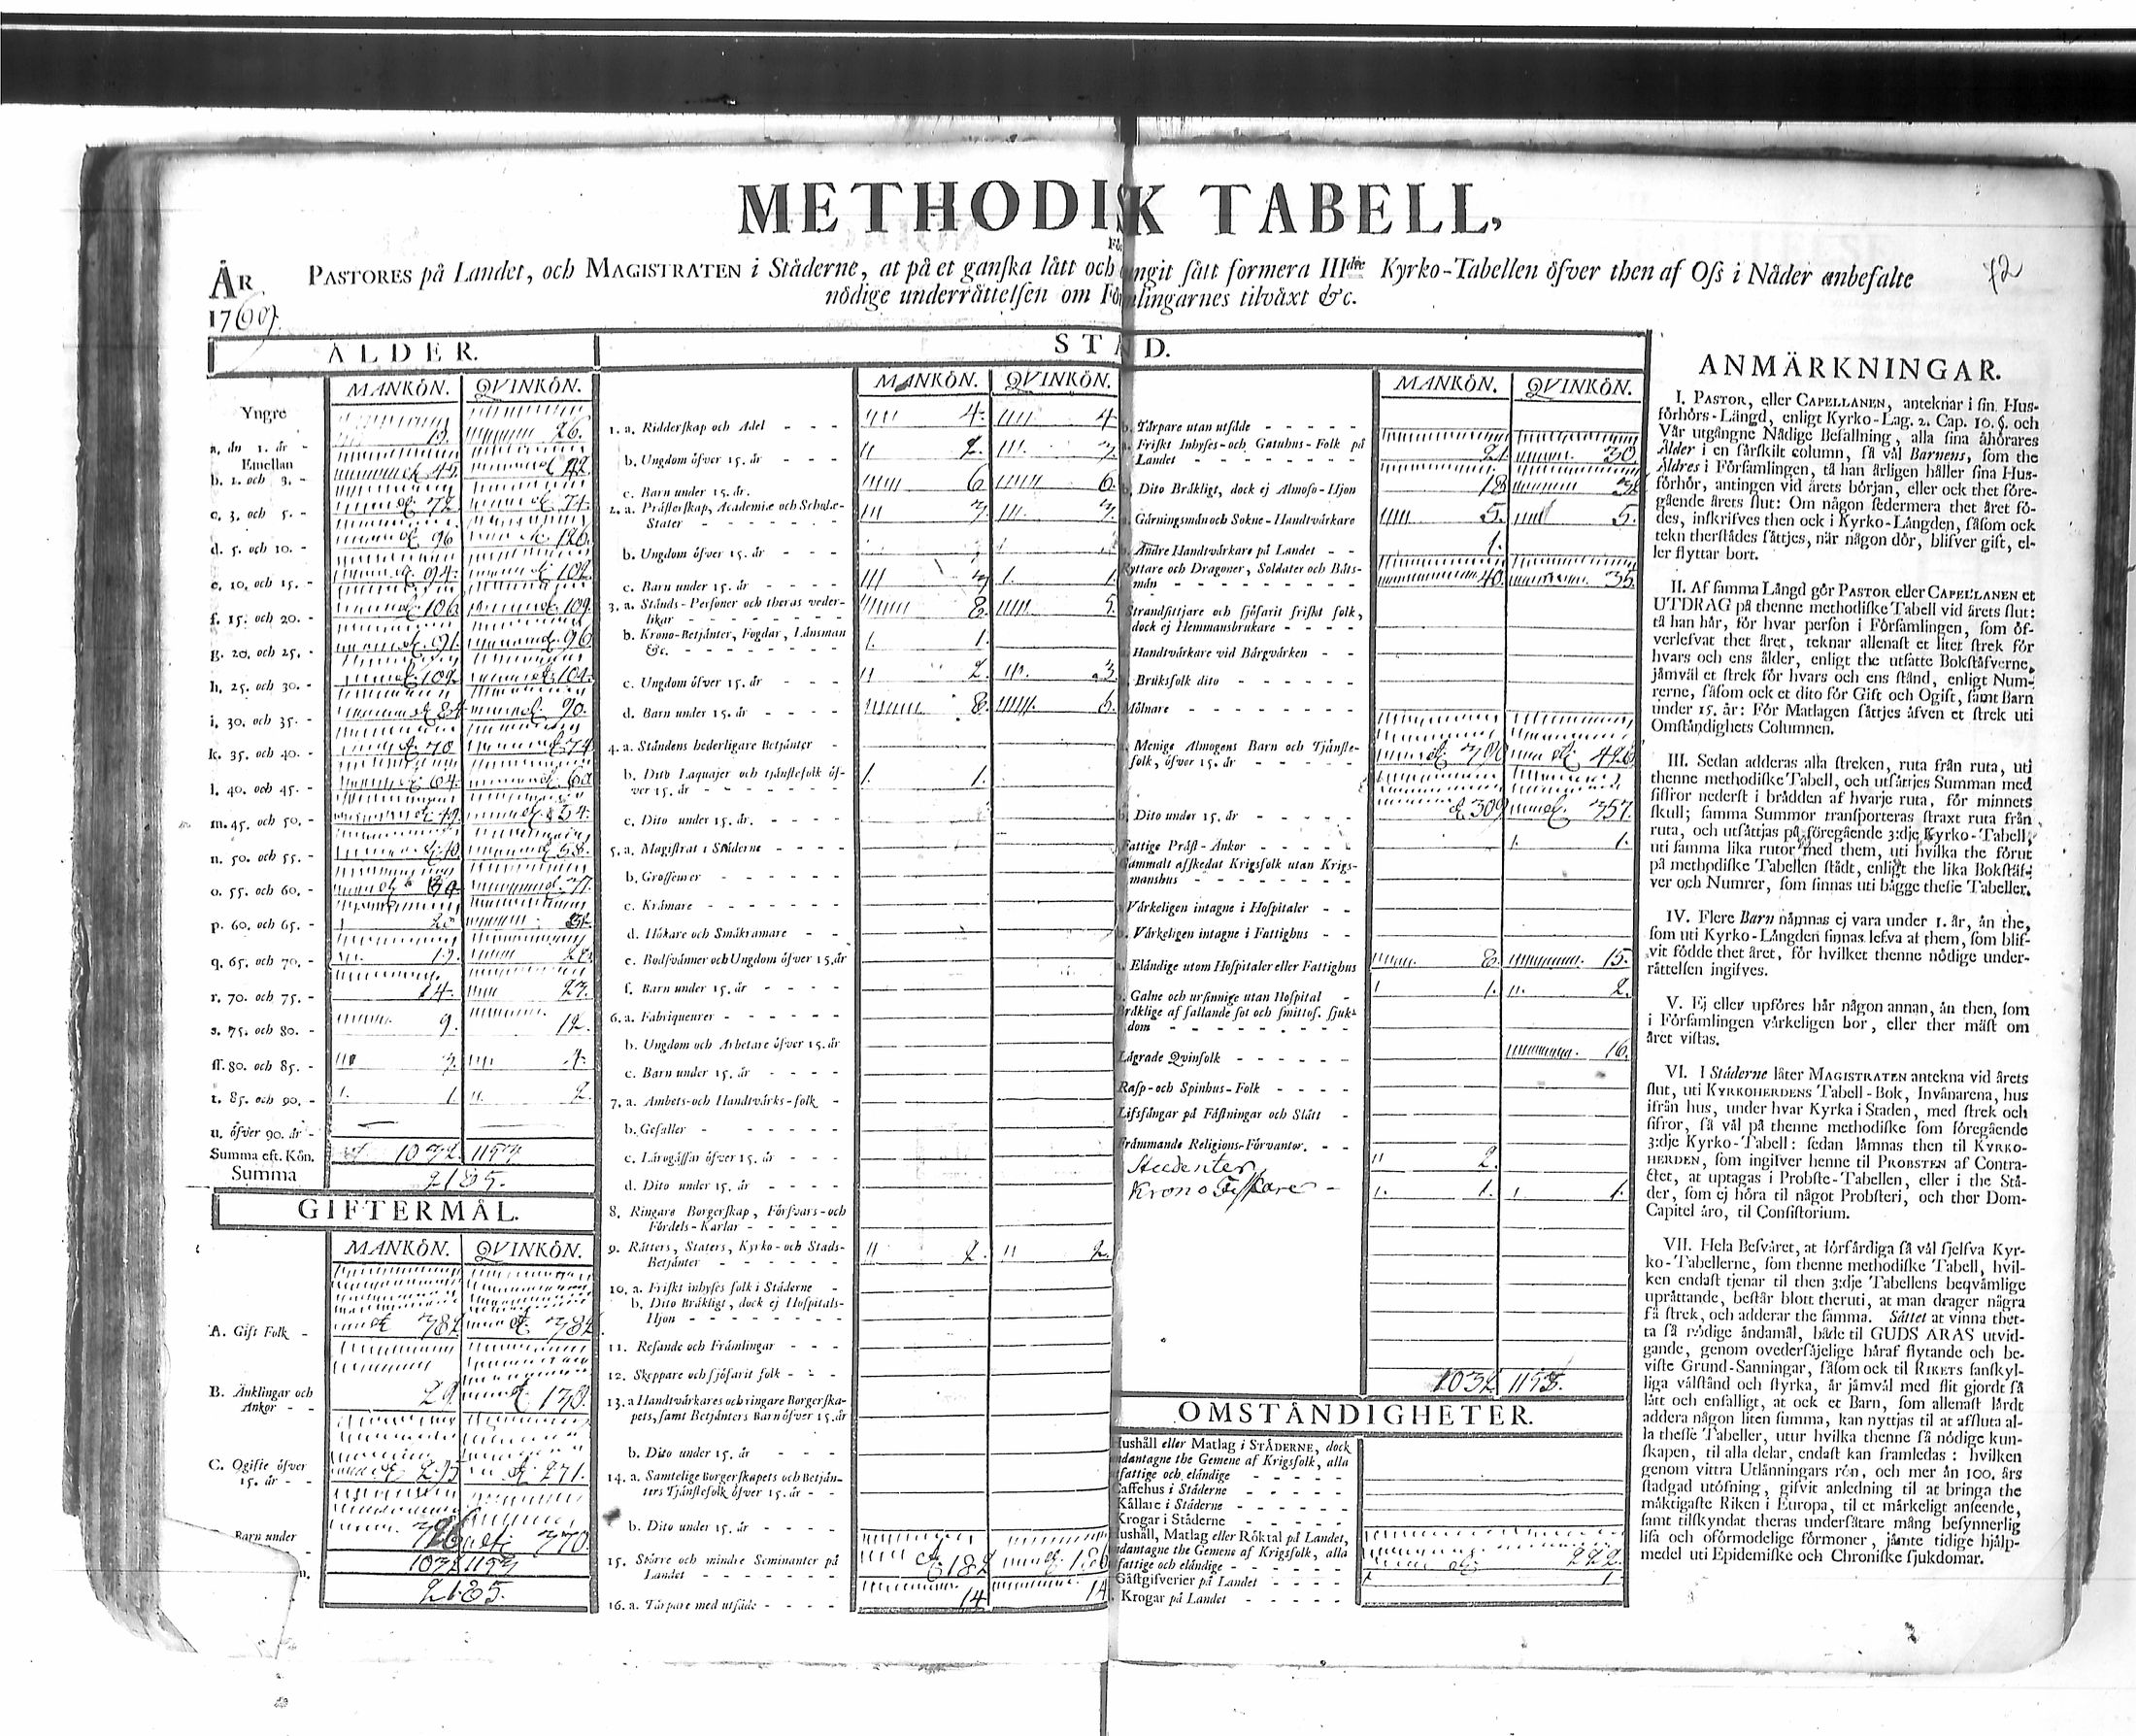 METHODISK TABELL,
72
ÅR
PASTORES på Landet, och MAGISTRATEN i Städerne, at på et ganska lätt och sätt formera IIIdie Kyrko-Tabellen öfver then af Oss i Nåder anbefalte
nödige underrättelsen om Församlingarnes tilväxt &c.
ÅLDER.
MANKÖN. QVINKÖN.
Yngre
a. än 1. år - 26.
Emellan
b. 1. och 3. -
c. 3. och 5. - 72 74.
d. 5. och 10. - 96 126.
e. 10. och 15. - 94. 102.
f. 15. och 20. - 106 109.
g. 20. och 25. - 91. 96
h. 25. och 30. - 102 104.
i. 30. och 35. - 84 90.
k. 35. och 40. - 70 74
l. 40. och 45. - 64. 60
m. 45. och 50. - 49. 54.
n. 50. och 55. - 58.
o. 55. och 60. -
p. 60. och 65. -
q. 65. och 70. -
r. 70. och 75. - 14. 27.
s. 75. och 80. - 9. 12.
ss. 80. och 85. - 3. 4.
t. 85. och 90. - 1. 2.
u. öfver 90. år -
Summa eft. Kön. 1032 1153
Summa 2185.
GIFTERMÅL.
MANKÖN. QVINKÖN.
A. Gift Folk - 382 382
B. Änklingar och
Änkor - - 29. 130.
C. Ogifte öfver
15. år - - 295 271.
Barn under 370.
1032 1153
2185.
STÅND.
MANKÖN. QVINKÖN.
1. a. Ridderskap och Adel - - - 4. 4
b. Ungdom öfver 15. år - - - 2. 3
c. Barn under 15. år. 6 6.
2. a. Prästerskap, Academiæ och Scholæ-
Stater - - - - - - 3. 3.
b. Ungdom öfver 15. år - - -
c. Barn under 15. år - - - 3 1.
3. a. Stånds-Personer och theras veder-
likar - - - - - - - 8. 5.
b. Krono-Betjänter, Fogdar, Länsman
&c. - - - - - - - 1.
c. Ungdom öfver 15. år - - - 2 3
d. Barn under 15. år - - - - 8. 6.
4. a. Ståndens hederligare Betjänter -
b. Dito Laquajer och tjänstefolk öf-
ver 15. år - - - - - - 1.
c. Dito under 15. år. - - - -
5. a. Magistrat i Städerne - - -
b. Grosseurer - - - - - -
c. Krämare - - - - - - -
d. Hökare och Småkramare - -
e. Bodsvänner och Ungdom öfver 15. år
f. Barn under 15. år - - - -
6. a. Fabriqueurer - - - - - -
b. Ungdom och Arbetare öfver 15. år
c. Barn under 15. år - - - -
7. a. Ambets-och Handtvärks-folk -
b. Gesäller - - - - - - -
c. Lärogåssar öfver 15. år - - -
d. Dito under 15. år - - - -
8. Ringare Borgerskap, Försvars-och
Fördels-Karlar - - - - -
9. Rätters, Staters, Kyrko-och Stads-
Betjänter - - - - - - 2. 2.
10. a. Friskt inhyses folk i Städerne -
b. Dito Bräkligt, dock ej Hospitals-
Hjon - - - - - - - -
11. Resande och Främlingar - - -
12. Skeppare och sjöfarit folk - - -
13. a Handtvärkares och ringare Borgerska-
pets, samt Betjänters Barn öfver 15. år
b. Dito under 15. år - - - -
14. a. Samtelige Borgerskapets och Betjän-
ters Tjänstefolk öfver 15. år - -
b. Dito under 15. år - - - -
15. Större och mindre Seminanter på
Landet - - - - - - - 182 186
16. a. Tårpare med utsäde - - - - 14 14
MANKÖN. QVINKÖN.
b. Tårpare utan utsäde - - - - -
a. Friskt Inhyses-och Gatuhus-Folk på
Landet - - - - - - - 21. 30
b. Dito Bräkligt, dock ej Almoso-Hjon 18
Gärningsmän och Sokne-Handtvärkare 5. 5.
Andre Handtvärkare på Landet - - 1.
Ryttare och Dragoner, Soldater och Båts-
män - - - - - - - - 40. 35.
Strandsittjare och sjöfarit friskt folk,
dock ej Hemmansbrukare - - - -
Handtvärkare vid Bärgvärken - -
Bruksfolk dito - - - - - -
Mölnare - - - - - - - -
Menige Almogens Barn och Tjänste-
folk, öfver 15. år - - - - -
Dito under 15. år - - - - 309 357.
Fattige Präst-Änkor - - - - - 1.
Gammalt afskedat Krigsfolk utan Krigs-
manshus - - - - - - -
Värkeligen intagne i Hospitaler - -
b. Värkeligen intagne i Fattighus - -
Eländige utom Hospitaler eller Fattighus 8. 15.
Galne och ursinnige utan Hospital - 1. 2.
Bräklige af fallande sot och smittos. sjuk-
dom - - - - - - - -
Lägrade Qvinfolk - - - - - 16.
Rasp-och Spinhus-Folk - - - -
Lifsfångar på Fästningar och Slått -
Främmande Religions-Förvanter. - -
Studenter 2.
Krono Fiskare - 1. 1.
1032 1153.
OMSTÄNDIGHETER.
Hushåll eller Matlag i STÄDERNE, dock
undantagne the Gemene af Krigsfolk, alla
fattige och eländige - - - - -
Caffehus i Städerne - - - - -
Källare i Städerne - - - - -
Krogar i Städerne - - - - -
Hushåll, Matlag eller Röktal på Landet,
undantagne the Gemene af Krigsfolk, alla
fattige och eländige - - - - - 222.
Gästgifverier på Landet - - - - 1.
Krogar på Landet - - - - -
ANMÄRKNINGAR.
I. PASTOR, eller CAPELLANEN, antecknar i sin Hus-
förhörs-Längd, enligt Kyrko-Lag. 2. Cap. 10. §. och
Vår utgångne Nådige Befallning, alla sina åhörares
Ålder i en särskilt column, så väl Barnens, som the
Äldres i Församlingen, tå han årligen håller sina Hus-
förhör, antingen vid årets början, eller ock thet före-
gående årets slut: Om någon sedermera thet året fö-
des, inskrifves then ock i Kyrko-Längden, såsom ock
tekn therstädes sättjes, när någon dör, blifver gift, el-
ler flyttar bort.
II. Af samma Längd gör PASTOR eller CAPELLANEN et
UTDRAG på thenne methodiske Tabell vid årets slut:
tå han här, för hvar person i Församlingen, som öf-
verlefvat thet året, teknar allenast et litet strek för
hvars och ens ålder, enligt the utsatte Bokstäfverne,
jämväl et strek för hvars och ens stånd, enligt Num-
rerne, såsom ock et dito för Gift och Ogift, samt Barn
under 15. år: För Matlagen sättjes äfven et strek uti
Omständighets Columnen.
III. Sedan adderas alla streken, ruta från ruta, uti
thenne methodiske Tabell, och utsättjes Summan med
siffror nederst i brädden af hvarje ruta, för minnets
skull; samma Summor transporteras straxt ruta från
ruta, och utsättjas på föregående 3:dje Kyrko-Tabell,
uti samma lika rutor med them, uti hvilka the förut
på methodiske Tabellen stådt, enligt the lika Bokstäf-
ver och Numrer, som finnas uti bägge thesse Tabeller.
IV. Flere Barn nämnas ej vara under 1. år, än the,
som uti Kyrko-Längden finnas lefva af them, som blif-
vit födde thet året, för hvilket thenne nödige under-
rättelsen ingifves.
V. Ej eller upföres här någon annan, än then, som
i Församlingen värkeligen bor, eller ther mäst om
året vistas.
VI. I Städerne låter MAGISTRATEN antekna vid årets
slut, uti KYRKOHERDENS Tabell-Bok, Invånarena, hus
ifrån hus, under hvar Kyrka i Staden, med strek och
sifror, så väl på thenne methodiske som föregående
3:dje Kyrko-Tabell: sedan lämnas then til KYRKO-
HERDEN, som ingifver henne til PROBSTEN af Contra-
ctet, at uptagas i Probste-Tabellen, eller i the Stä-
der, som ej höra til något Probsteri, och ther Dom-
Capitel äro, til Consistorium.
VII. Hela Besväret, at förfärdiga så väl sjelfva Kyr-
ko-Tabellerne, som thenne methodiske Tabell, hvil-
ken endast tjenar til then 3:dje Tabellens beqvämlige
uprättande, består blott theruti, at man drager några
få strek, och adderar the samma. Sättet at vinna thet-
ta så nödige ändamål, både til GUDS ÄRAS utvid-
gande, genom ovedersäjelige häraf flytande och be-
viste Grund-Sanningar, såsom ock til RIKETS sanskyl-
liga välstånd och styrka, är jämväl med flit gjordt så
lätt och enfalligt, at ock et Barn, som allenast lärdt
addera någon liten summa, kan nyttjas til at affluta al-
la thesse Tabeller, utur hvilka thenne så nödige kun-
skapen, til alla delar, endast kan framledas: hvilken
genom vittra Utlänningars rön, och mer än 100. års
stadgad utöfning, gifvit anledning til at bringa the
mäktigaste Riken i Europa, til et märkeligt anseende,
samt tilskyndat theras undersåtare mång besynnerlig
lisa och oförmodelige förmoner, jämte tidige hjälp-
medel uti Epidemiske och Chroniske sjukdomar.